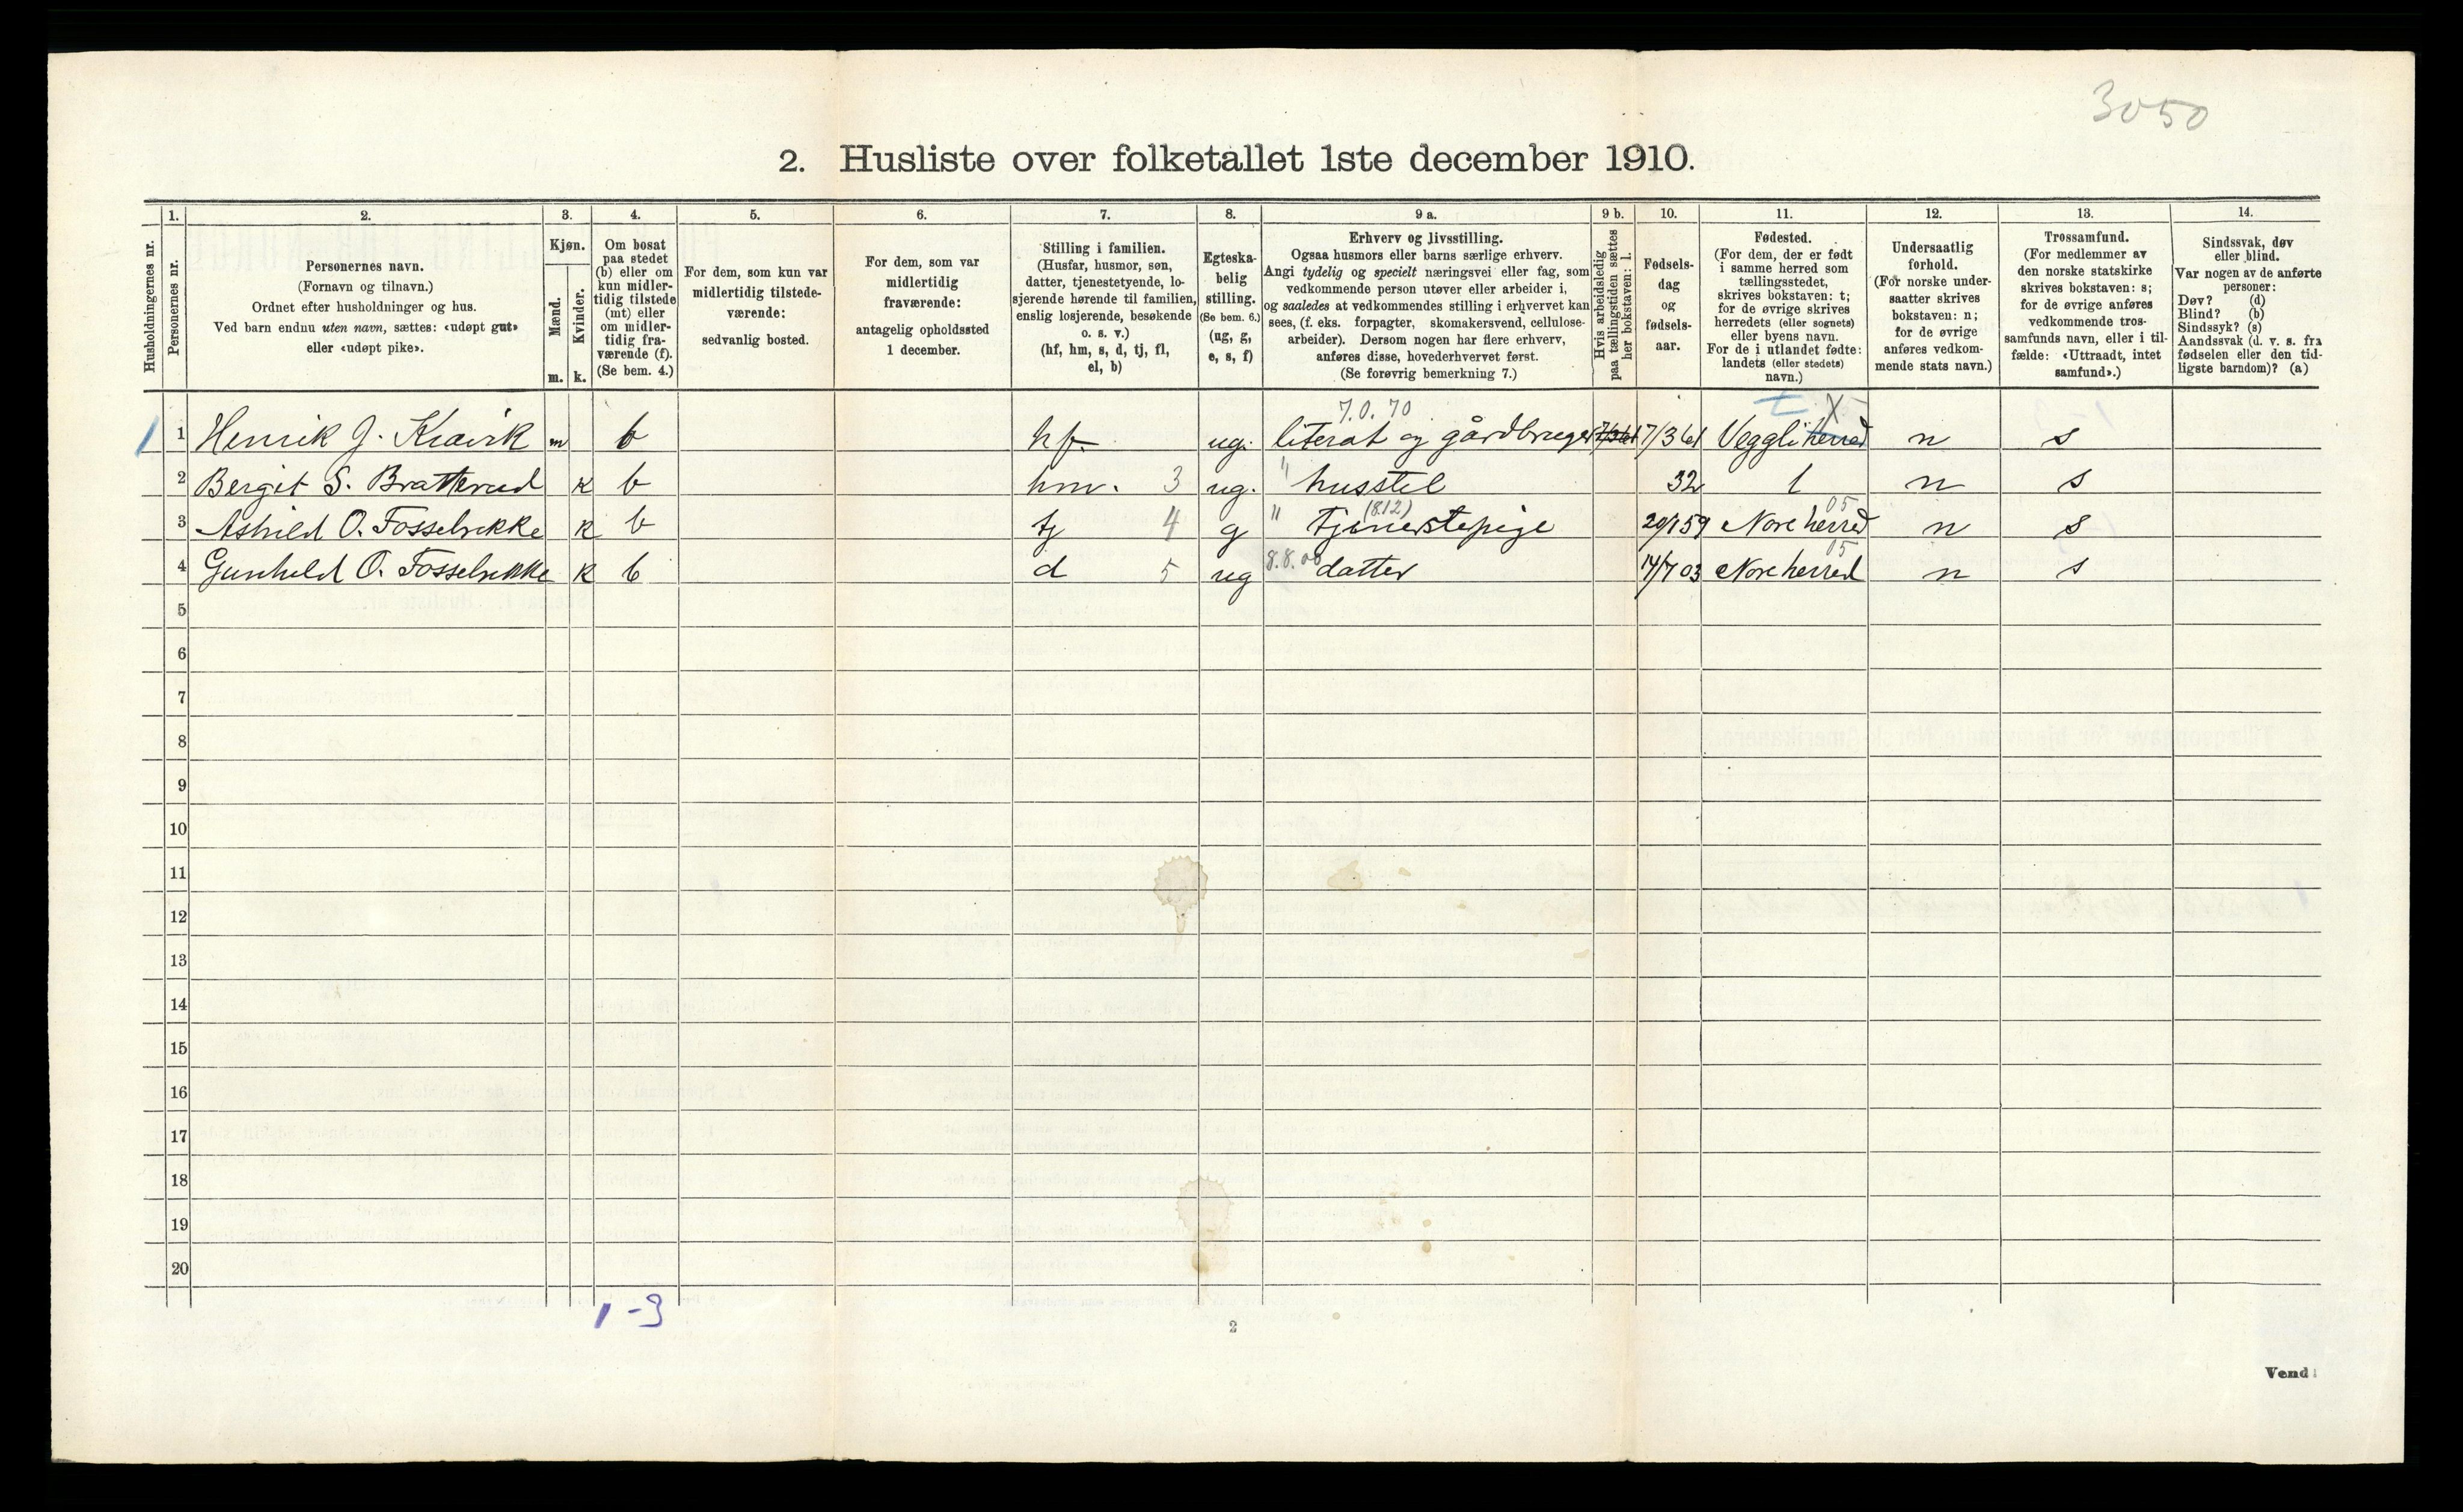 3050
2. Husliste over folketallet 1ste december 1910.
Husholdningernes nr.
1.
Personernes nr.
2.
Personernes navn.
(Fornavn og tilnavn.)
Ordnet efter husholdninger og hus.
Ved barn endnu uten navn, sættes: «udøpt gut»
eller «udøpt pike».
3.
Kjøn.
Mænd.
m.
Kvinder.
k.
4.
Om bosat
paa stedet
(b) eller om
kun midler-
tidig tilstede
(mt) eller
om midler-
tidig fra-
værende (f).
(Se bem. 4.)
5.
For dem, som kun var
midlertidig tilstede-
værende:
sedvanlig bosted.
6.
For dem, som var
midlertidig
fraværende:
antagelig opholdssted
1 december.
7.
Stilling i familien.
(Husfar, husmor, søn,
datter, tjenestetyende, lo-
sjerende hørende til familien,
enslig losjerende, besøkende
o. s. v.)
(hf, hm, s, d, tj, fl,
el, b)
8.
Egteska-
belig
stilling.
(Se bem. 6.)
(ug, g,
e, s, f)
9 a.
Erhverv og livsstilling.
Ogsaa husmors eller barns særlige erhverv.
Angi tydelig og specielt næringsvei eller fag, som
vedkommende person utøver eller arbeider i,
og saaledes at vedkommendes stilling i erhvervet kan
sees, (f. eks. forpagter, skomakersvend, cellulose-
arbeider). Dersom nogen har flere erhverv,
anføres disse, hovederhvervet først.
(Se forøvrig bemerkning 7.)
9 b.
Hvis arbeidsledig
paa tællingstiden sættes
her bokstaven: l.
10.
Fødsels-
dag
og
fødsels-
aar.
11.
Fødested.
(For dem, der er født
i samme herred som
tællingsstedet,
skrives bokstaven: t;
for de øvrige skrives
herredets (eller sognets)
eller byens navn.
For de i utlandet fødte:
landets (eller stedets)
navn.)
12.
Undersaatlig
forhold.
(For norske under-
saatter skrives
bokstaven: n;
for de øvrige
anføres vedkom-
mende stats navn.)
13.
Trossamfund.
(For medlemmer av
den norske statskirke
skrives bokstaven: s;
for de øvrige anføres
vedkommende tros-
samfunds navn, eller i til-
fælde: «Uttraadt, intet
samfund».)
14.
Sindssvak, døv
eller blind.
Var nogen av de anførte
personer:
Døv? (d)
Blind? (b)
Sindssyk? (s)
Aandssvak (d. v. s. fra
fødselen eller den tid-
ligste barndom)? (a)
7.0.70 t X
1 1 Henrik G. Kravik m b hf. ug. literat og gårdbruger 7/3 61 7/3 61 Veggli herred n s
2 Bergit S. Bratterud k b hm. 3 ug. " husstel 32 t n s
(812) 05
3 Astrild O. Fosselrekke k b tj 4 g " Tjenerstepige 20/1 59 Nore herred n s
8.8.00 05
4 Gunhild O. Fosselrekke k b d 5 ug datter 14/7 03 Nore herred n s
5
6
7
8
9
10
11
12
13
14
15
16
17
18
19
20
1-3
2
Vend!